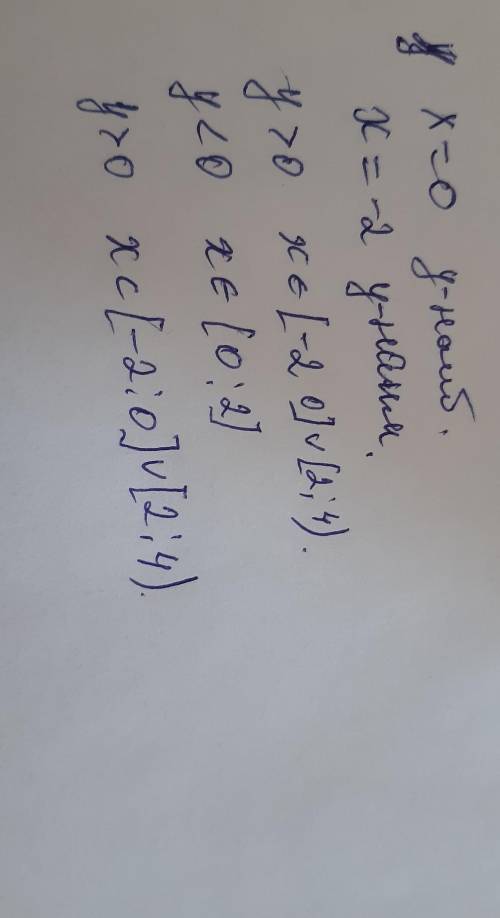 x = 0 y-наиб.
x = -2 y-наим.
y > 0 x ∈ [-2 0] ∪ [2; 4).
y < 0 x ∈ [0; 2]
y > 0 x ⊂ [-2; 0] ∪ [2; 4).